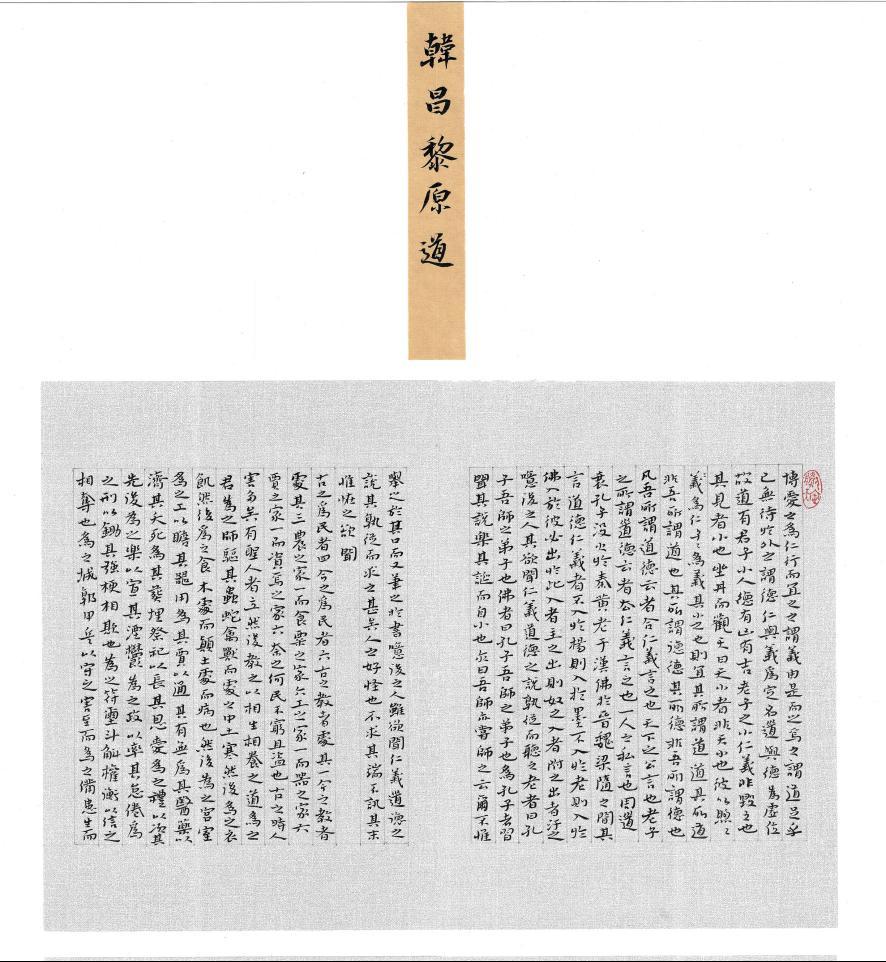 韓昌黎原道
博愛之為仁行而宜之之謂義由是而之焉之謂道足乎
己無待於外之謂德仁與義為定名道與德為虛位
故道有君子小人德有凶有吉老子之小仁義非毀之也
其見者小也坐井而觀天曰天小者非天小也彼以煦〻
義為仁孑〻為義其小之也則宜其所謂道道其所道
非吾所謂道也其所謂德德其所德非吾所謂德也
凡吾所謂道德云者合仁義言之也天下之公言也老子
之所謂道德云者去仁義言之也一人之私言也周道
衰孔子沒火於秦黃老于漢佛於晉魏梁隋之間其
言道德仁義者不入於楊則入於墨不入於老則入於
佛入於彼必出於此入者主之出則奴之入者附之出者汙之
噫後之人其欲聞仁義道德之說孰從而聽之老者曰孔
子吾師之弟子也佛者曰孔子吾師之弟子也為孔子者習
聞其說樂其誕而自小也亦曰吾師亦嘗師之云爾不惟
舉之於其口而又筆之於書噫後之人雖欲聞仁義道德之
說其孰從而求之甚矣人之好怪也不求其端不訊其末
惟怪之欲聞
古之為民者四今之為民者六古之教者處其一今之教者
處其三農之家一而食粟之家六工之家一而器之家六
賈之家一而資焉之家六奈之何民不窮且盜也古之時人
害多矣有聖人者立然後教之以相生相養之道為之
君為之師驅其蟲蛇禽獸而處之中土寒然後為之衣
飢然後為之食木處而顛土處而病也然後為之宮室
為之工以贍其器用為其賈以通其有無為其醫藥以
濟其夭死為其葬埋祭祀以長其恩愛為之禮以次其
先後為之樂以宣其湮鬱為之政以率其怠倦為
之刑以鋤其強梗相欺也為之符璽斗斛權衡以信之
相奪也為之城郭甲兵以守之害至而為之備患生而